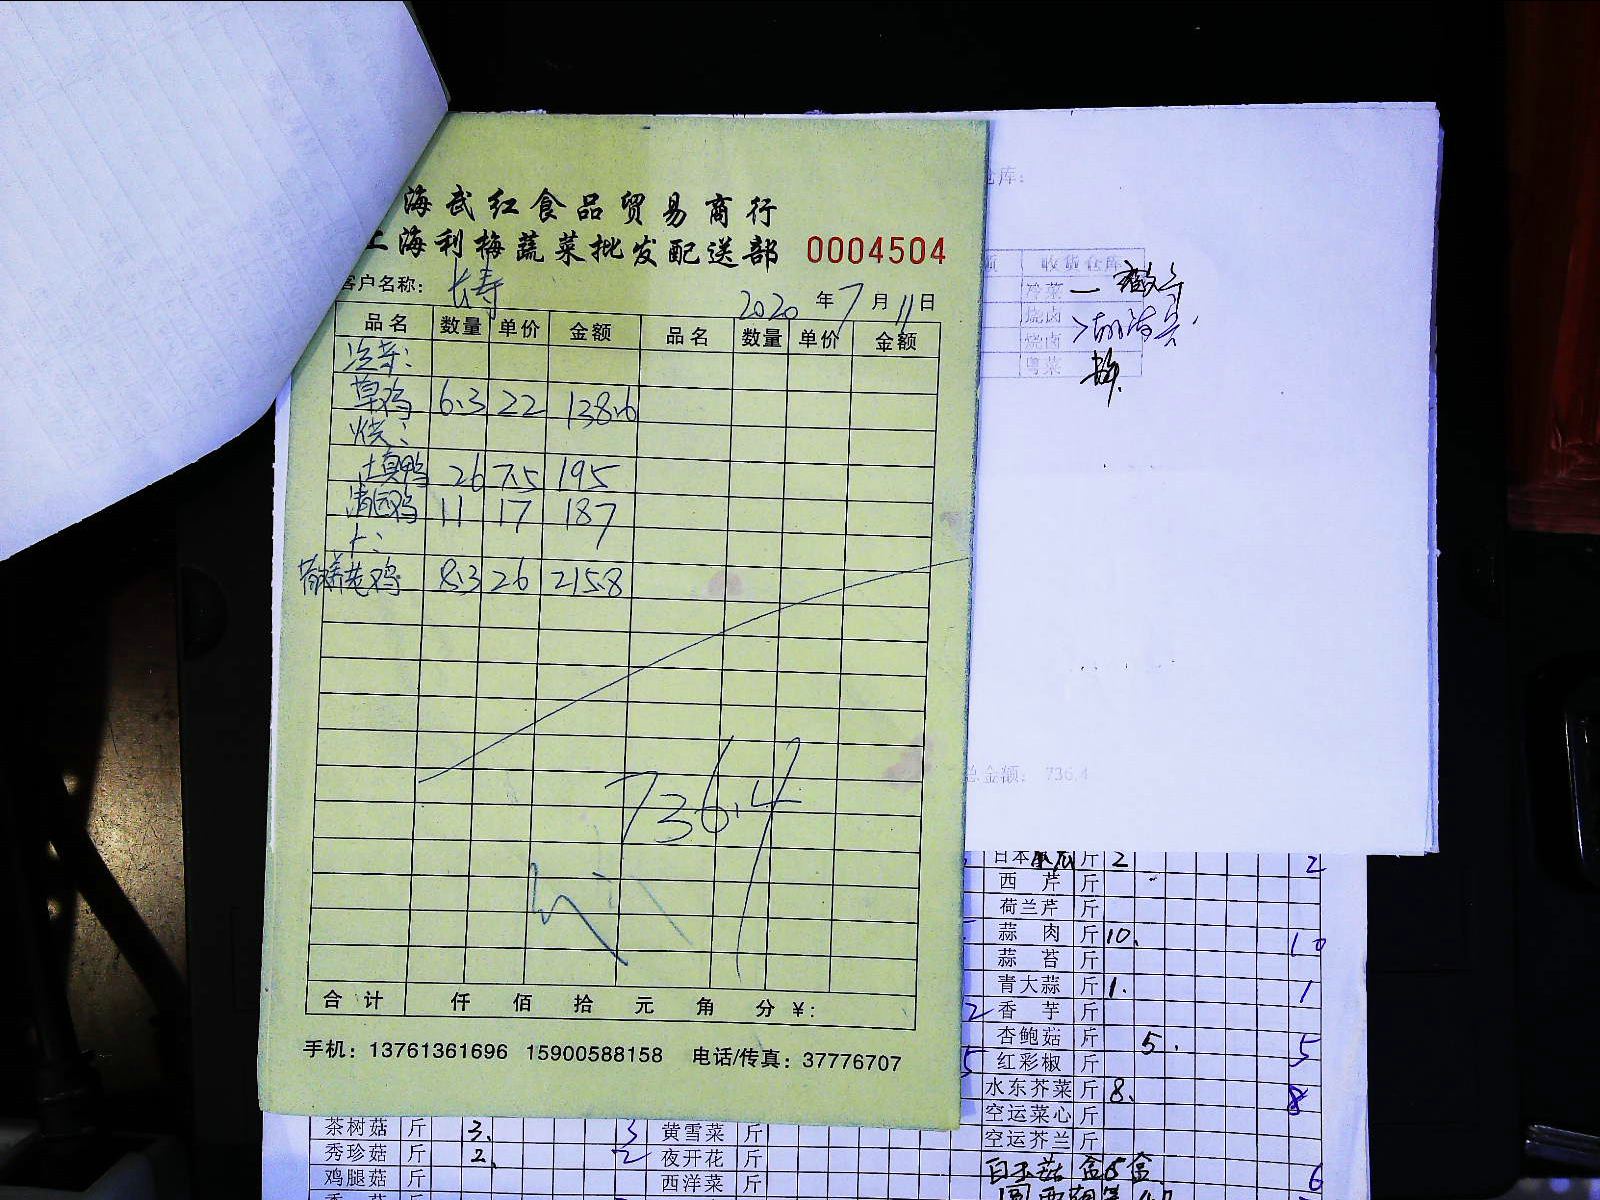 海武红食品贸易商行
上海利梅蔬菜批发配送部 0004504
客户名称: 长寿
2020 年 7 月 11 日
品名 数量 单价 金额 品名 数量 单价 金额
草鸡 6.3 22 138.6
烧:
26 7.5 195
清远鸡 11 17 187
8.3 26 215.8
736.4
合计 仟 佰 拾 元 角 分 ¥:
手机: 13761361696 15900588158 电话/传真: 37776707
仓库:
额 收货仓库
冷菜
烧卤
烧卤
粤菜
总金额: 736.4
日本 斤 2 2
西芹 斤
荷兰芹 斤
蒜肉 斤 10. 10
蒜苔 斤
青大蒜 斤 1. 1
2 香芋 斤
杏鲍菇 斤 5. 5
5 红彩椒 斤
水东芥菜 斤 8. 8
空运菜心 斤
空运芥兰 斤
白玉菇 盒 6 盒 6
茶树菇 斤 3. 3 黄雪菜 斤
秀珍菇 斤 2. 2 夜开花 斤
鸡腿菇 斤 西洋菜 斤